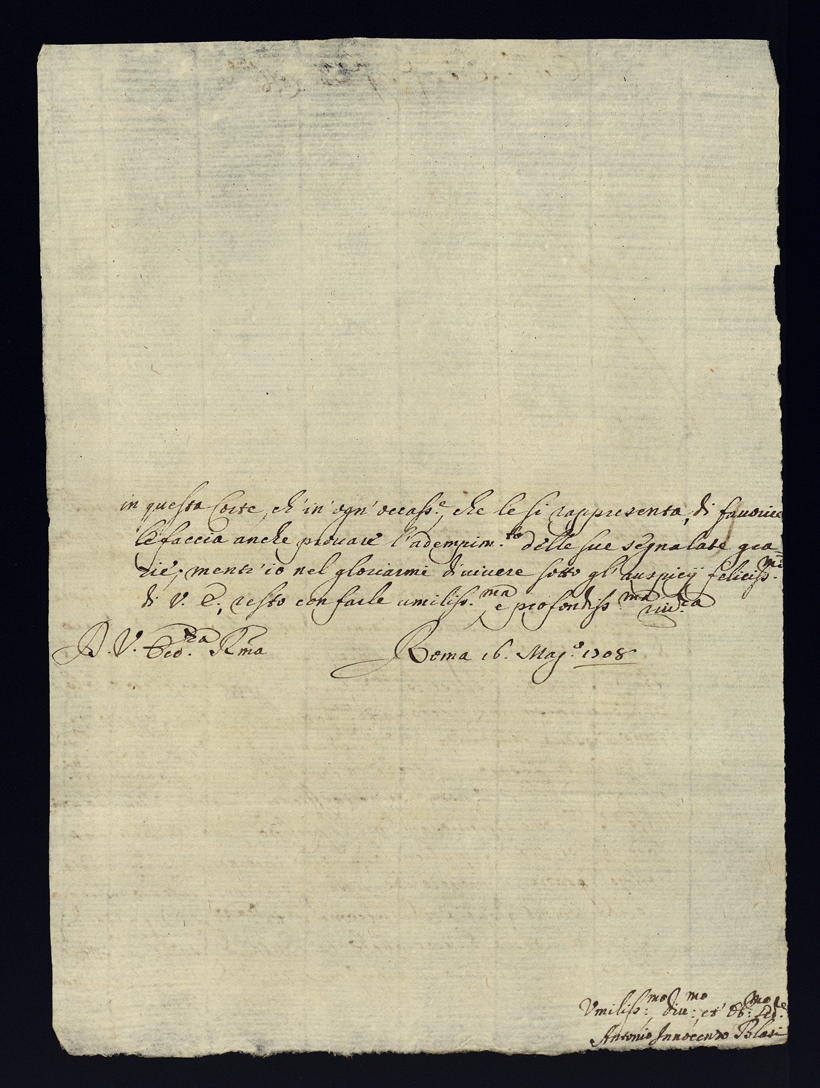 in questa Corte, ch' in' ogn' occass.e, che le si rappresenta, di fauorire
le faccia anche prouare l'adempim.to delle sue segnalate gra=
zie; mentr' io nel gloriarmi di viuere sotto gl' auspicij feliciss.mi
di V. E., resto con farle umiliss.ma e profondiss.ma riu.za
D. V. Ecc.za Rma
Roma 16. Mag.o 1708
Vmiliss.mo diu.mo et Ob.mo Se.re
Antonio Innocenzo Blasi